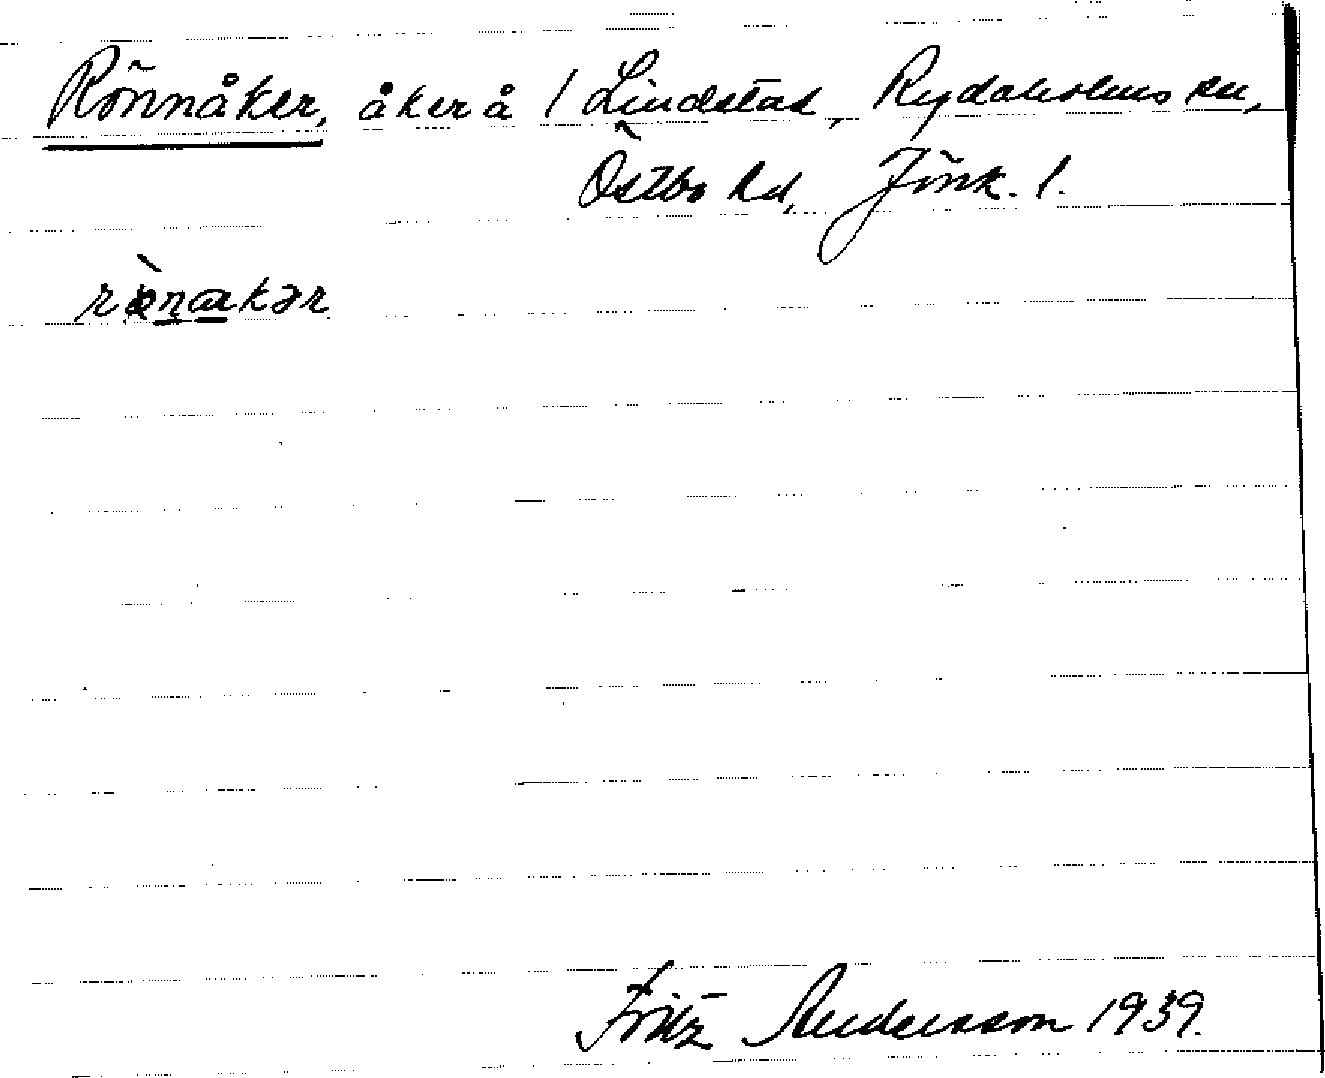 Rönnåker, åker å / Lindstad, Rydaholms sn,
Östbo hd, Jönk. l.
Fritz Andersson 1939.